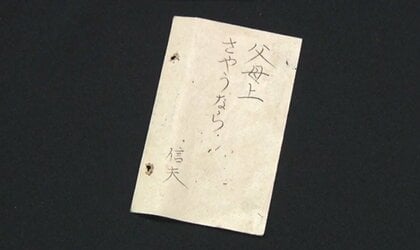 父母上
さやうなら
信夫